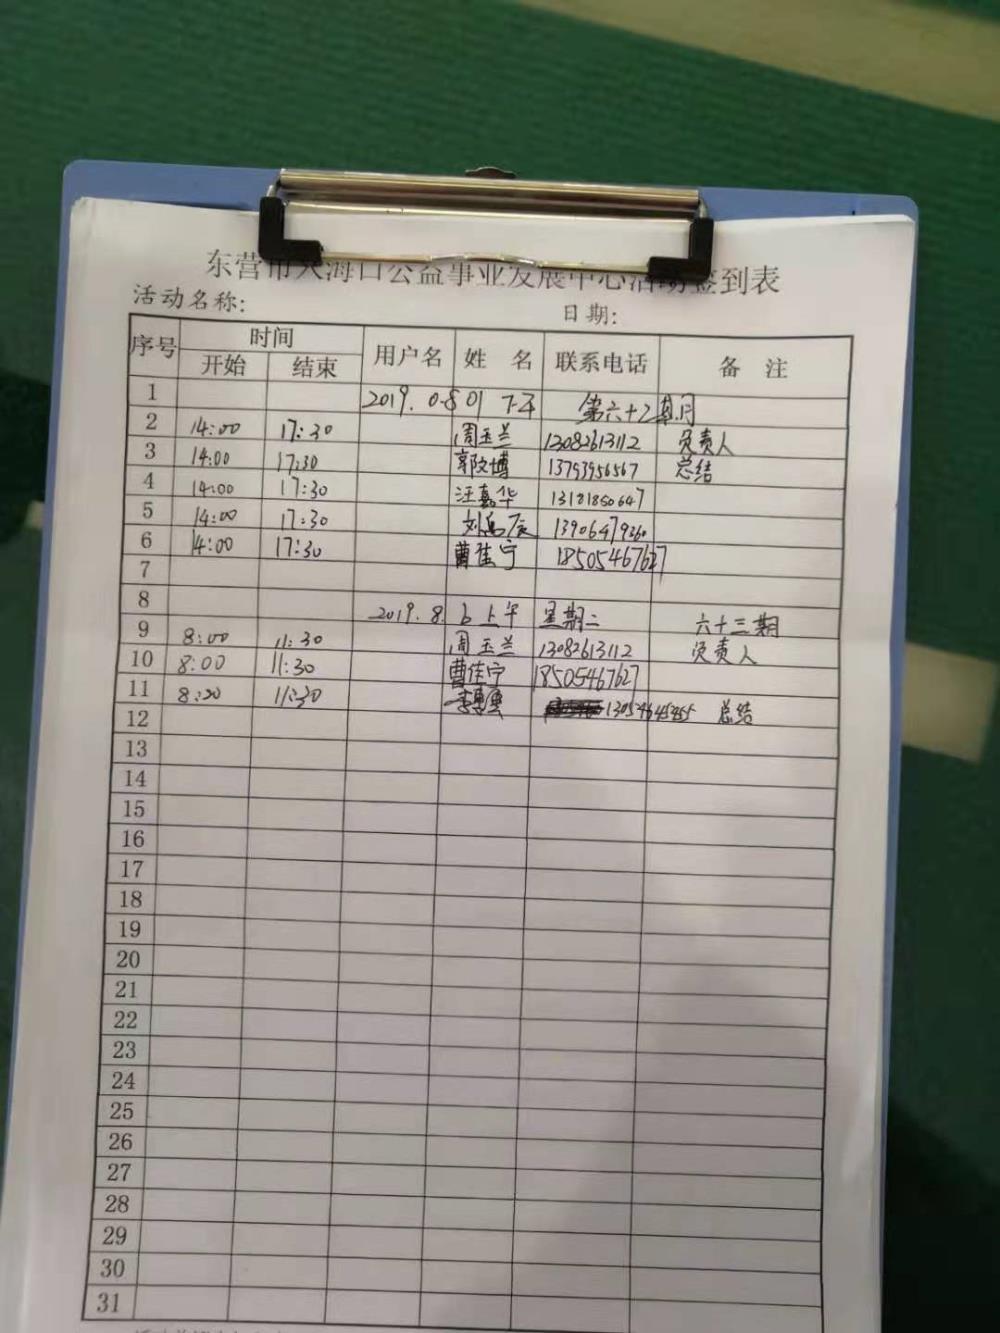 东营市入海口公益事业发展中心活动签到表
活动名称: 日期:
序号 时间 用户名 姓 名 联系电话 备 注
开始 结束
1 2019.0801 下午 第六十二期
2 14:00 17:30 周玉兰 13082613112 负责人
3 14:00 17:30 郭文博 13793956567 总结
4 14:00 17:30 汪嘉华 13181850647
5 14:00 17:30 13906479260
6 14:00 17:30 曹佳宁 18505467627
7
8 2019.8.6 上午 星期二 六十三期
9 8:00 11:30 周玉兰 13082613112 负责人
10 8:00 11:30 曹佳宁 18505467627
11 8:00 11:30 总结
12
13
14
15
16
17
18
19
20
21
22
23
24
25
26
27
28
29
30
31